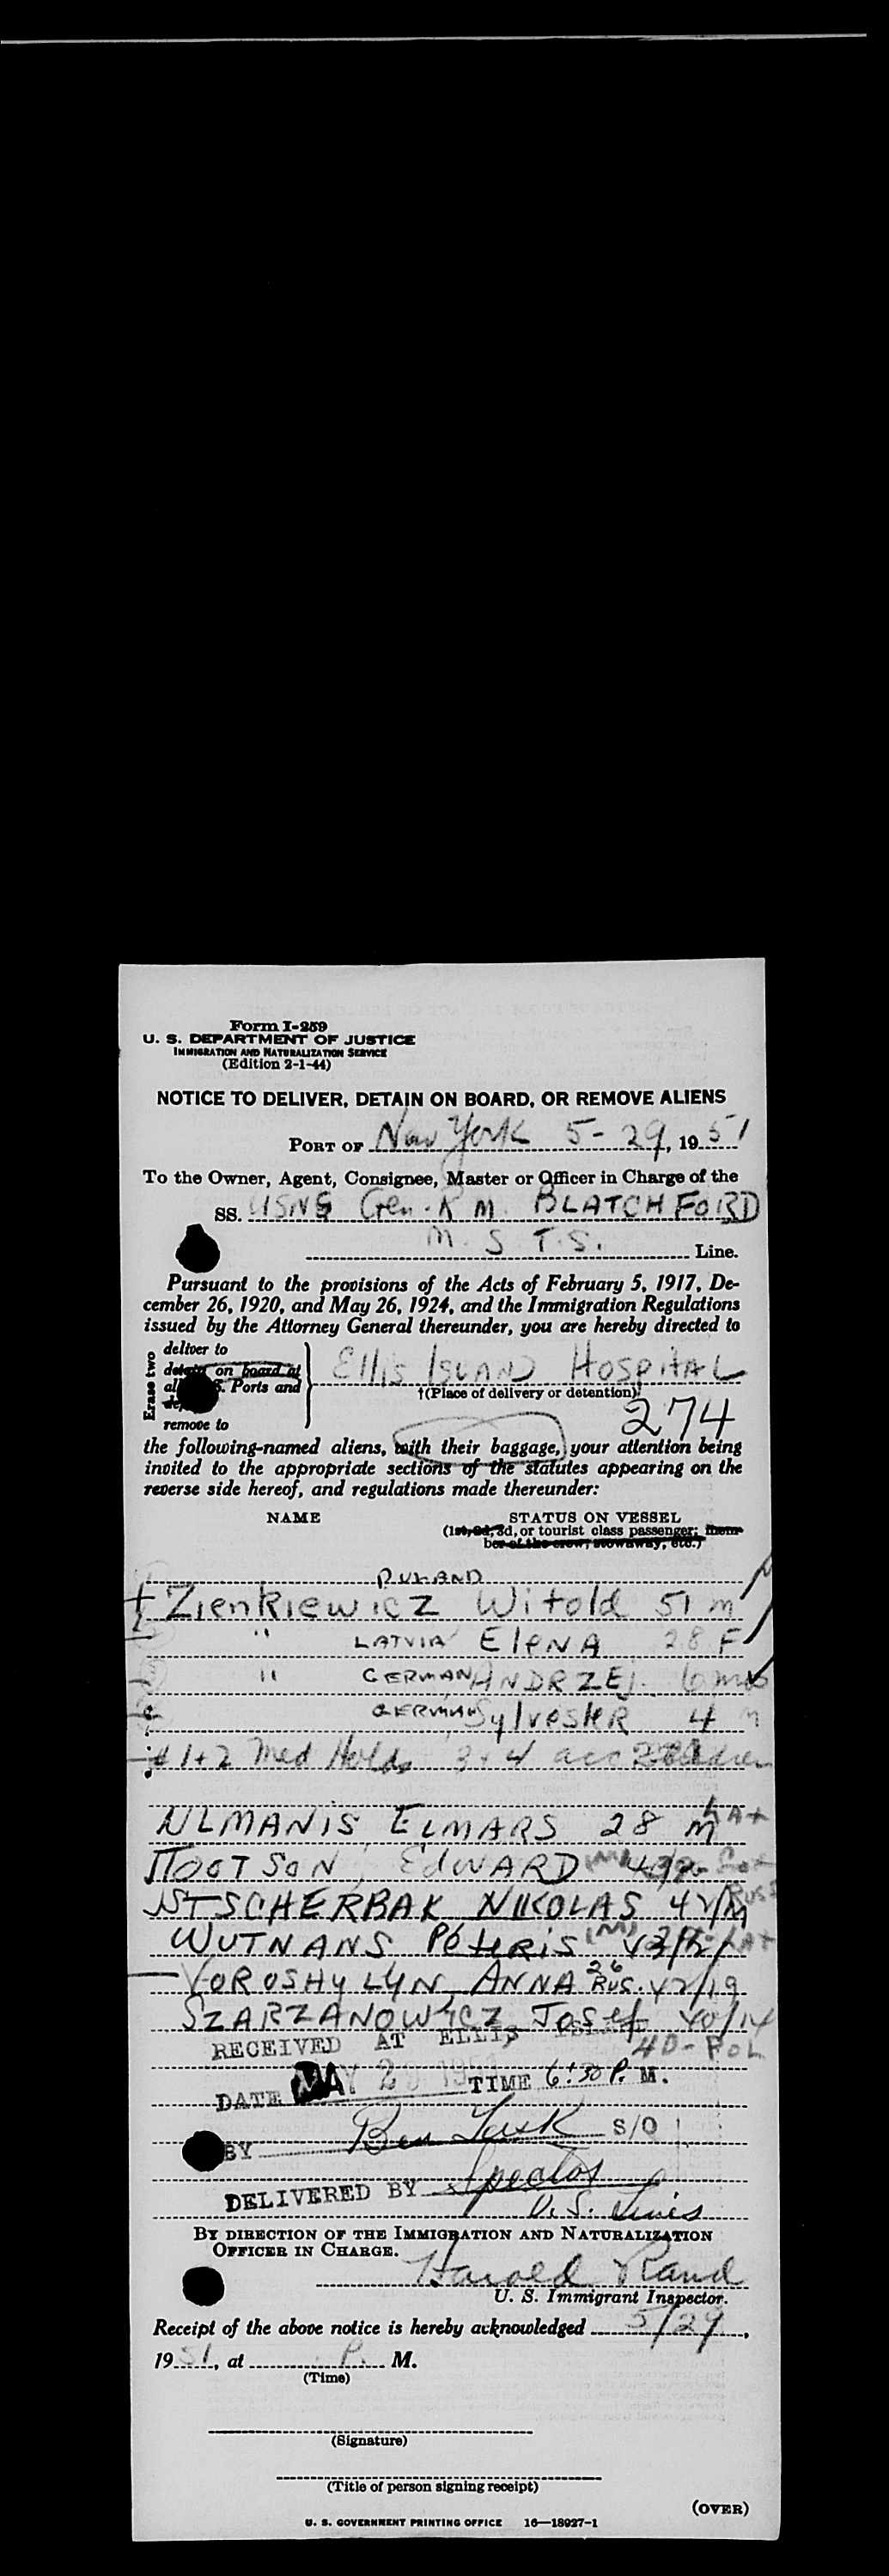 Form I-259
U. S. DEPARTMENT OF JUSTICE
IMMIGRATION AND NATURALIZATION SERVICE
(Edition 2-1-44)
NOTICE TO DELIVER, DETAIN ON BOARD, OR REMOVE ALIENS
PORT OF New York 5-29, 1951
To the Owner, Agent, Consignee, Master or Officer in Charge of the
SS. USNS Gen. R M. BLATCHFORD
M. S. T. S. Line.
Pursuant to the provisions of the Acts of February 5, 1917, De-
cember 26, 1920, and May 26, 1924, and the Immigration Regulations
issued by the Attorney General thereunder, you are hereby directed to
Erase two
deliver to
detain on board at
Ports and
remove to
Ellis ISLAND HOSPITAL
†(Place of delivery or detention)
274
the following-named aliens, with their baggage, your attention being
invited to the appropriate sections of the statutes appearing on the
reverse side hereof, and regulations made thereunder:
NAME STATUS ON VESSEL
(1st, 2d, 3d, or tourist class passenger; mem-
ber of the crew, stowaway, etc.)
POLAND
Zienkiewicz Witold 51 m
" LATVIA ElENA 28 F
" GERMAN ANDRZEJ. 6 mos
GERMAN SylvesteR 4 M
# 1+2 Med Holds 3+4 acc
NLMANIS ELMARS 28 m LAT
EDWARD
ISTSCHERBAK NIKOLAS 42/M
WUTNANS PéteRis (M)
VOROSHYLYN, ANNA 26 RUS. 42/19
SZARZANOWICZ Josef 40/14
40-POL
RECEIVED AT ELLIS ISLAND
DATE MAY 29 1951 TIME 6:30 P. M.
BY Ben S/O
DELIVERED BY
U. S. Lines
BY DIRECTION OF THE IMMIGRATION AND NATURALIZATION
OFFICER IN CHARGE.
Harold Rand
U. S. Immigrant Inspector.
Receipt of the above notice is hereby acknowledged 5/29,
1951, at P. M.
(Time)
(Signature)
(Title of person signing receipt)
(OVER)
U. S. GOVERNMENT PRINTING OFFICE 16—18027-1